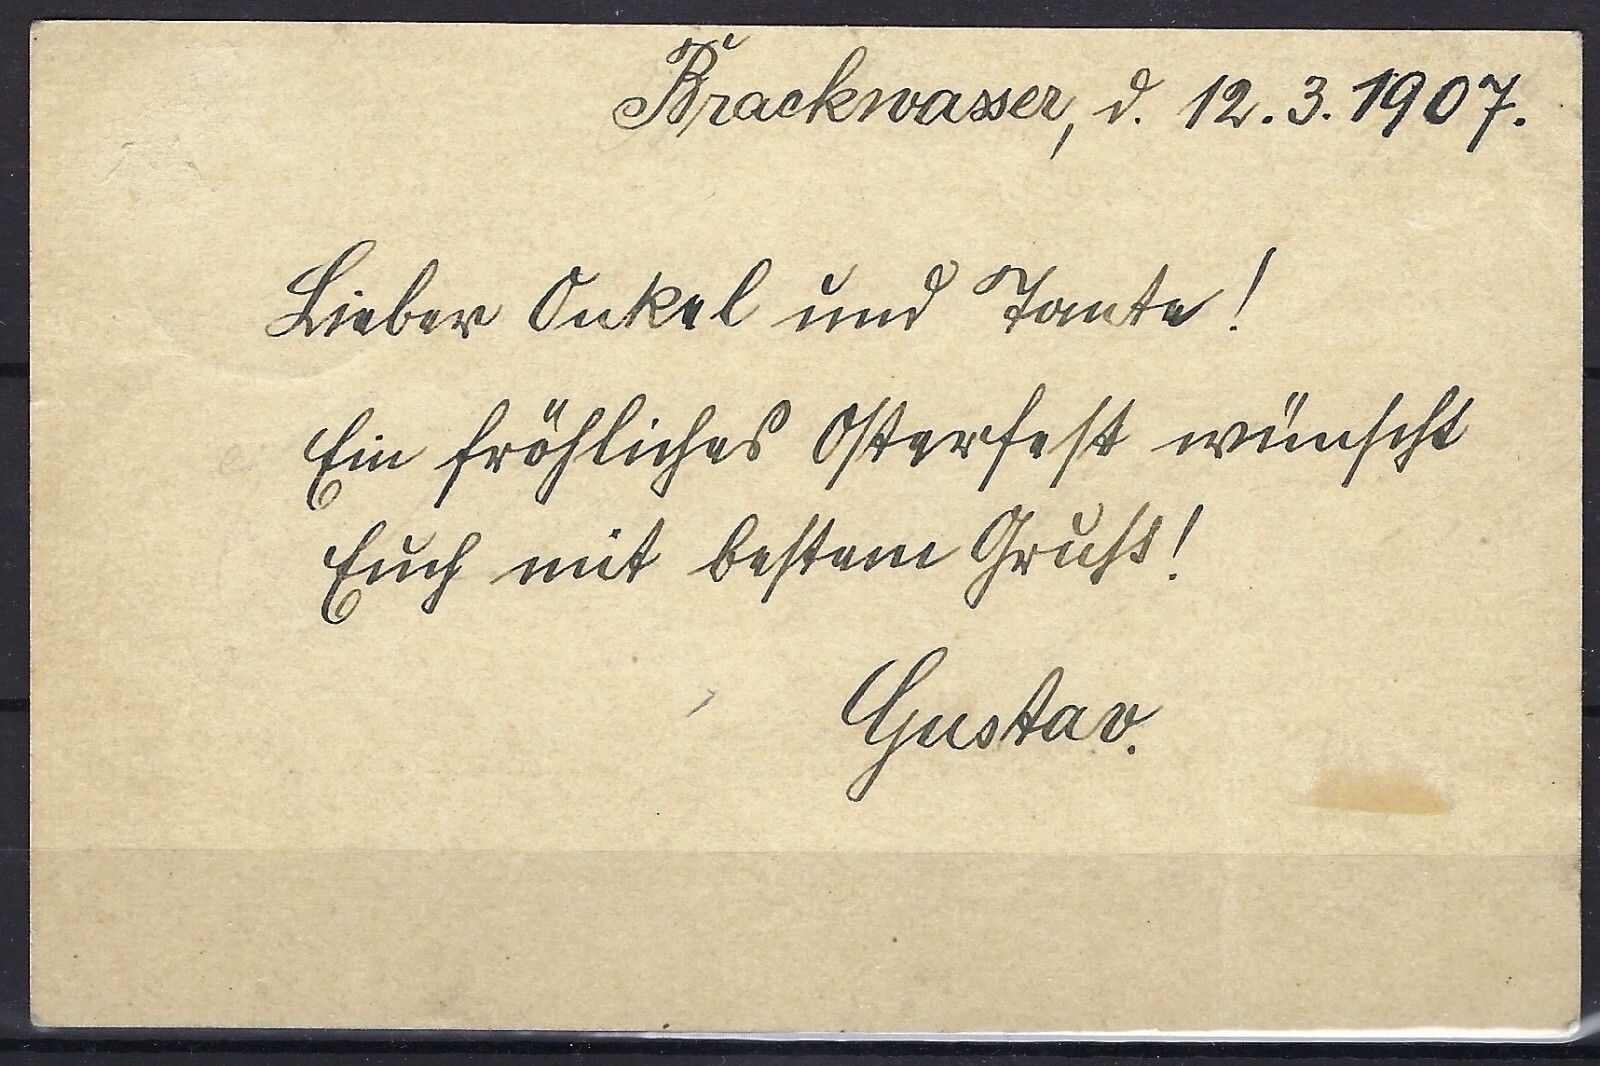 Brackwasser, d. 12.3.1907.
Lieber Onkel und Tante!
Ein fröhliches Osterfest wünscht
Euch mit bestem Gruß!
Gustav.